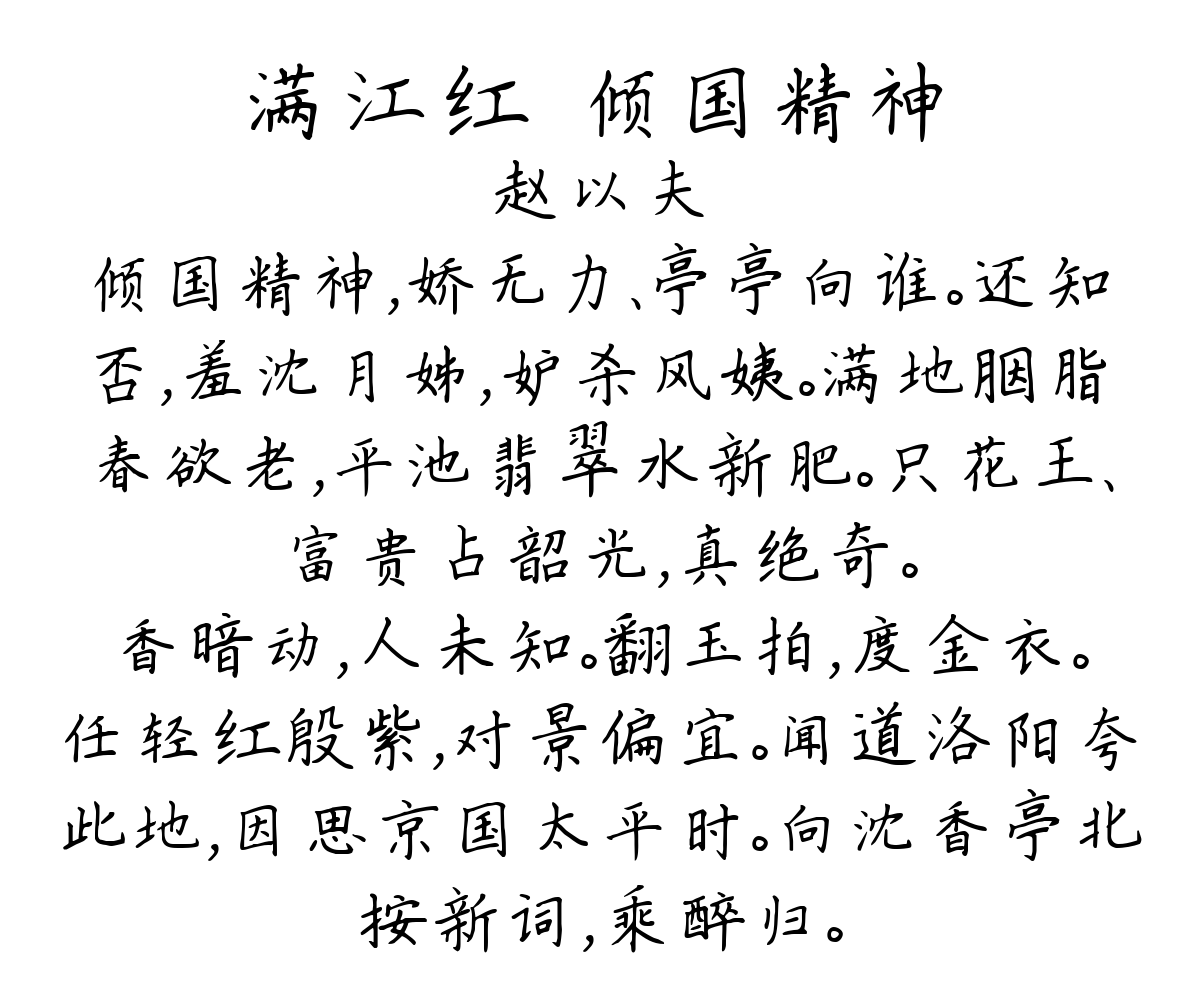 满江红 倾国精神
赵以夫
倾国精神,娇无力、亭亭向谁。还知
否,羞沈月姊,妒杀风姨。满地胭脂
春欲老,平池翡翠水新肥。只花王、
富贵占韶光,真绝奇。
香暗动,人未知。翻玉拍,度金衣。
任轻红殷紫,对景偏宜。闻道洛阳夸
此地,因思京国太平时。向沈香亭北
按新词,乘醉归。